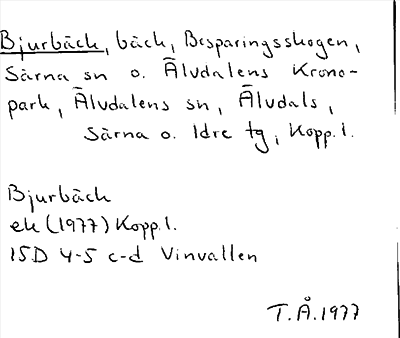 Bjurbäck, bäck, Besparingsskogen,
Särna sn o. Älvdalens Krono-
park, Älvdalens sn, Älvdals,
Särna o. Idre tg, Kopp. l.
Bjurbäck
ek (1977) Kopp. l.
15D 4-5 c-d Vinvallen
T.Å. 1977